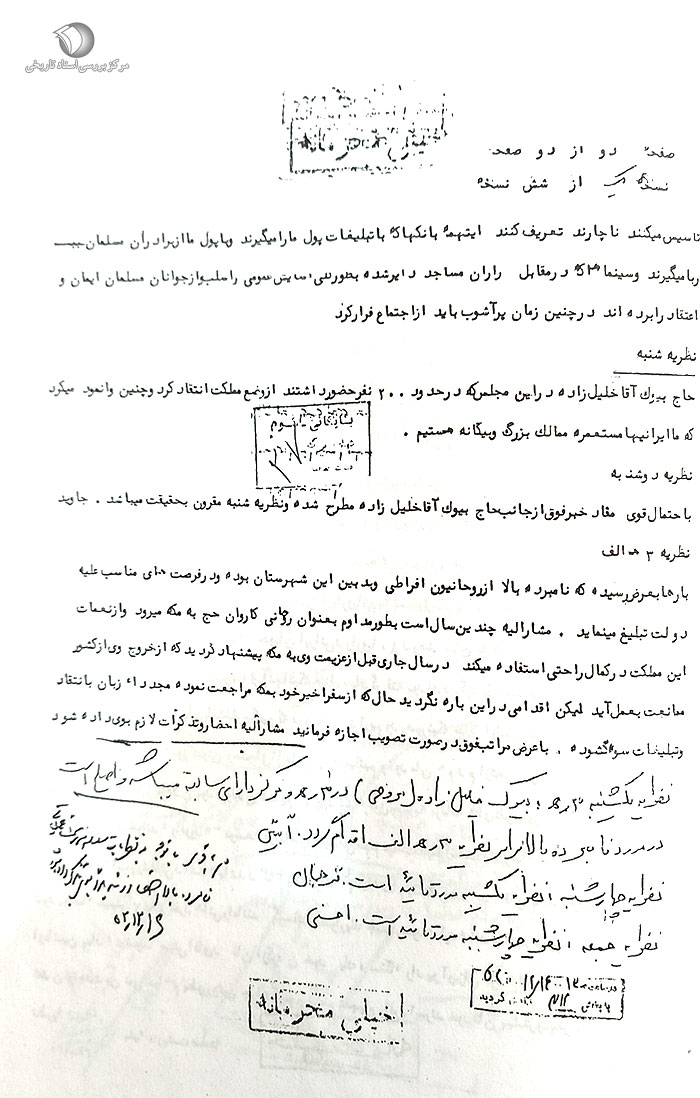 مرکز بررسی اسناد تاریخی
خیلی محرمانه
صفحه دو از دو صفحه
نسخه یک از شش نسخه
تاسیس میکنند ناچارند تعریف کنند اینهمه بانکها که با تبلیغات پول ما را میگیرند و با پول ما از برادران مسلمان
ربا میگیرند و سینما که در مقابل مساجد دایر شده بطورکلی عمومی را سلب و از جوانان مسلمان ایمان و
اعتقاد را برده اند در چنین زمان پرآشوب باید از اجتماع فرار کرد
نظریه شنبه
حاج بیوک آقا خلیل زاده در این مجلس که در حدود ۲۰۰ نفر حضور داشتند از وضع مملکت انتقاد کرد و چنین وانمود میکرد
که ما ایرانیها مستعمره ممالک بزرگ و بیگانه هستیم .
نظریه دوشنبه
با احتمال قوی مفاد خبر فوق از جانب حاج بیوک آقا خلیل زاده مطرح شده و نظریه شنبه مقرون بحقیقت میباشد . جاوید
نظریه ۳ هـ الف
بارها بعرض رسیده که نامبرده بالا از روحانیون افراطی و بدبین این شهرستان بوده و در فرصت های مناسب علیه
دولت تبلیغ مینماید . مشارالیه چندین سال است بطور مداوم بعنوان روحانی کاروان حج به مکه میرود و از نعمات
این مملکت در کمال راحتی استفاده میکند در سال جاری قبل از عزیمت وی به مکه پیشنهاد گردید که از خروج وی از کشور
ممانعت بعمل آید لیکن اقدامی در این باره نگردید حال که از سفر اخیر خود بمکه مراجعت نموده مجددا زبان بانتقاد
و تبلیغات سوء گشوده . با عرض مراتب فوق در صورت تصویب اجازه فرمایند مشارالیه احضار و تذکرات لازم بوی داده شود
نظریه یکشنبه ۳ هـ : بیوک خلیل زاده در ۳ هـ و مرکز دارای سابقه میباشد و اصلح است
در مورد نامبرده بالا برابر نظریه ۳ هـ الف اقدام گردد.
نظریه چهارشنبه : نظریه یکشنبه مورد تائید است.
نظریه جمعه : نظریه چهارشنبه مورد تائید است.
خیلی محرمانه